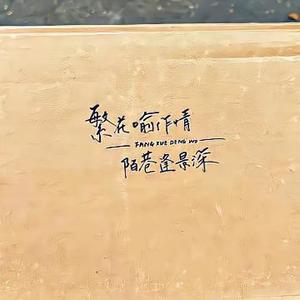 繁花喻作情
FANG XUE DENG WO
陌巷逢景深